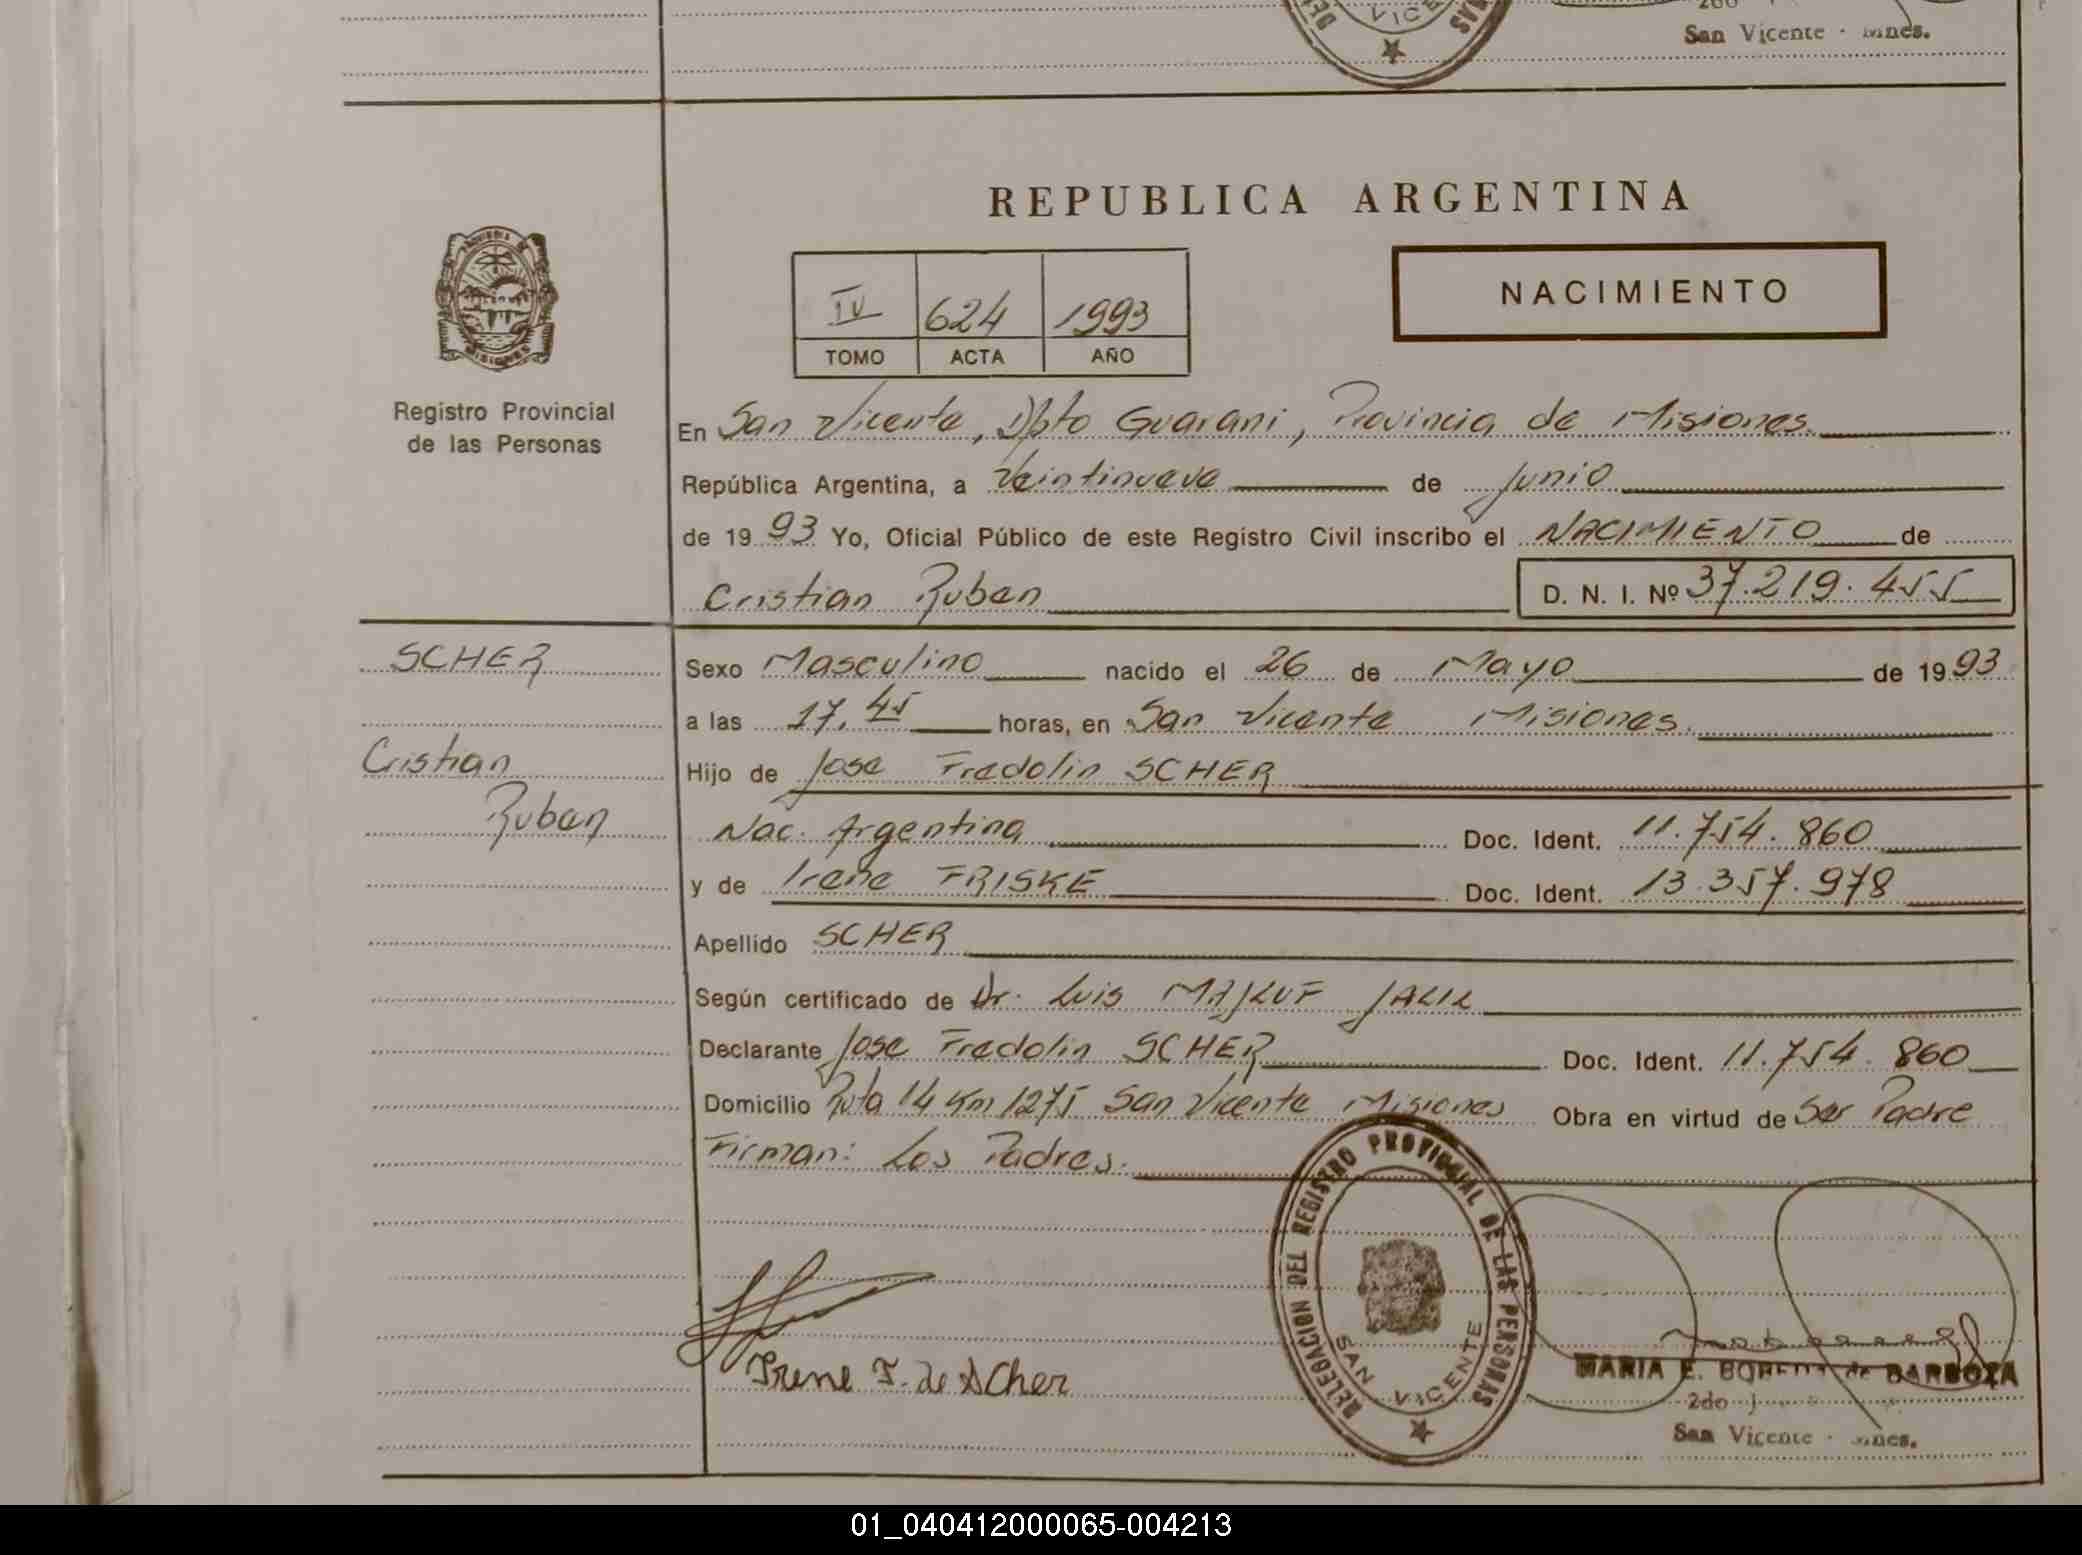 San Vicente · Mnes.
REPUBLICA ARGENTINA
IV 624 1993
TOMO ACTA AÑO
NACIMIENTO
Registro Provincial
de las Personas
En San Vicente, Dpto Guarani, Provincia de Misiones.
República Argentina, a Veintinueve de Junio
de 1993 Yo, Oficial Público de este Registro Civil inscribo el NACIMIENTO de
Cristian Ruben D. N. I. Nº 37.219.455
SCHER
Cristian
Ruben
Sexo Masculino nacido el 26 de Mayo de 1993
a las 17.45 horas, en San Vicente Misiones.
Hijo de Jose Fredolin SCHER
Nac. Argentina Doc. Ident. 11.754.860
y de Irene FRISKE Doc. Ident. 13.357.978
Apellido SCHER
Según certificado de Dr. Luis MAJLUF JALIL
Declarante Jose Fredolin SCHER Doc. Ident. 11.754.860
Domicilio Ruta 14 Km 1275 San Vicente Misiones Obra en virtud de Ser Padre
Firman: Los Padres.
DELEGACION DEL REGISTRO PROVINCIAL DE LAS PERSONAS
SAN VICENTE
Irene F. de Scher
MARIA E. de BARBOZA
2do
San Vicente · Mnes.
01_040412000065-004213